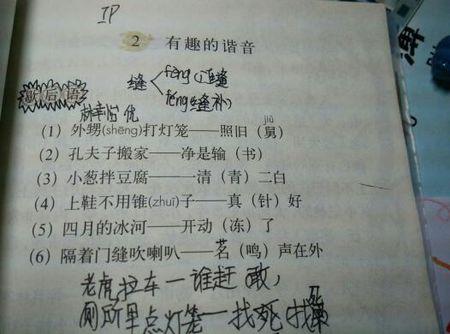 IP
2 有趣的谐音
缝 fèng(连缝
féng(缝补)
歇后语
(1) 外甥(shēng)打灯笼——照旧(舅)jiù
(2) 孔夫子搬家——净是输(书)
(3) 小葱拌豆腐——一清(青)二白
(4) 上鞋不用锥(zhuī)子——真(针)好
(5) 四月的冰河——开动(冻)了
(6) 隔着门缝吹喇叭——茗(鸣)声在外
老虎拉车—谁赶敢,
厕所里点灯笼—找死